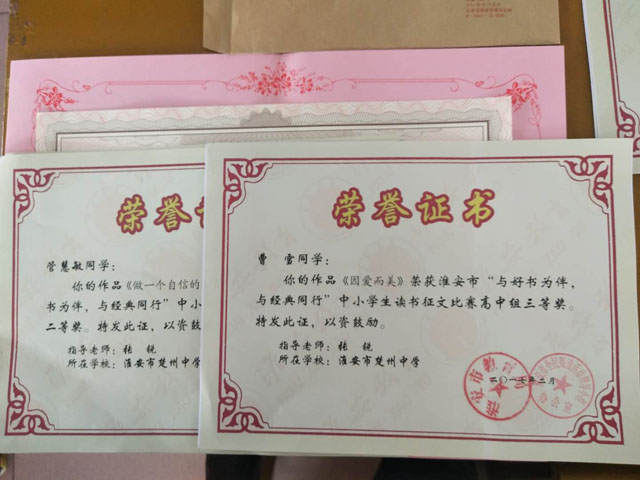 荣誉
管慧敏同学：
你的作品《做一个自信的
书为伴，与经典同行”中小
二等奖。特发此证，以资鼓
指导老师：张 锐
所在学校：淮安市楚州中学
荣誉证书
曹 雪同学：
你的作品《因爱而美》荣获淮安市“与好书为伴，
与经典同行”中小学生读书征文比赛高中组三等奖。
特发此证，以资鼓励。
指导老师：张 锐
所在学校：淮安市楚州中学
淮安市教育
二〇一七年二月